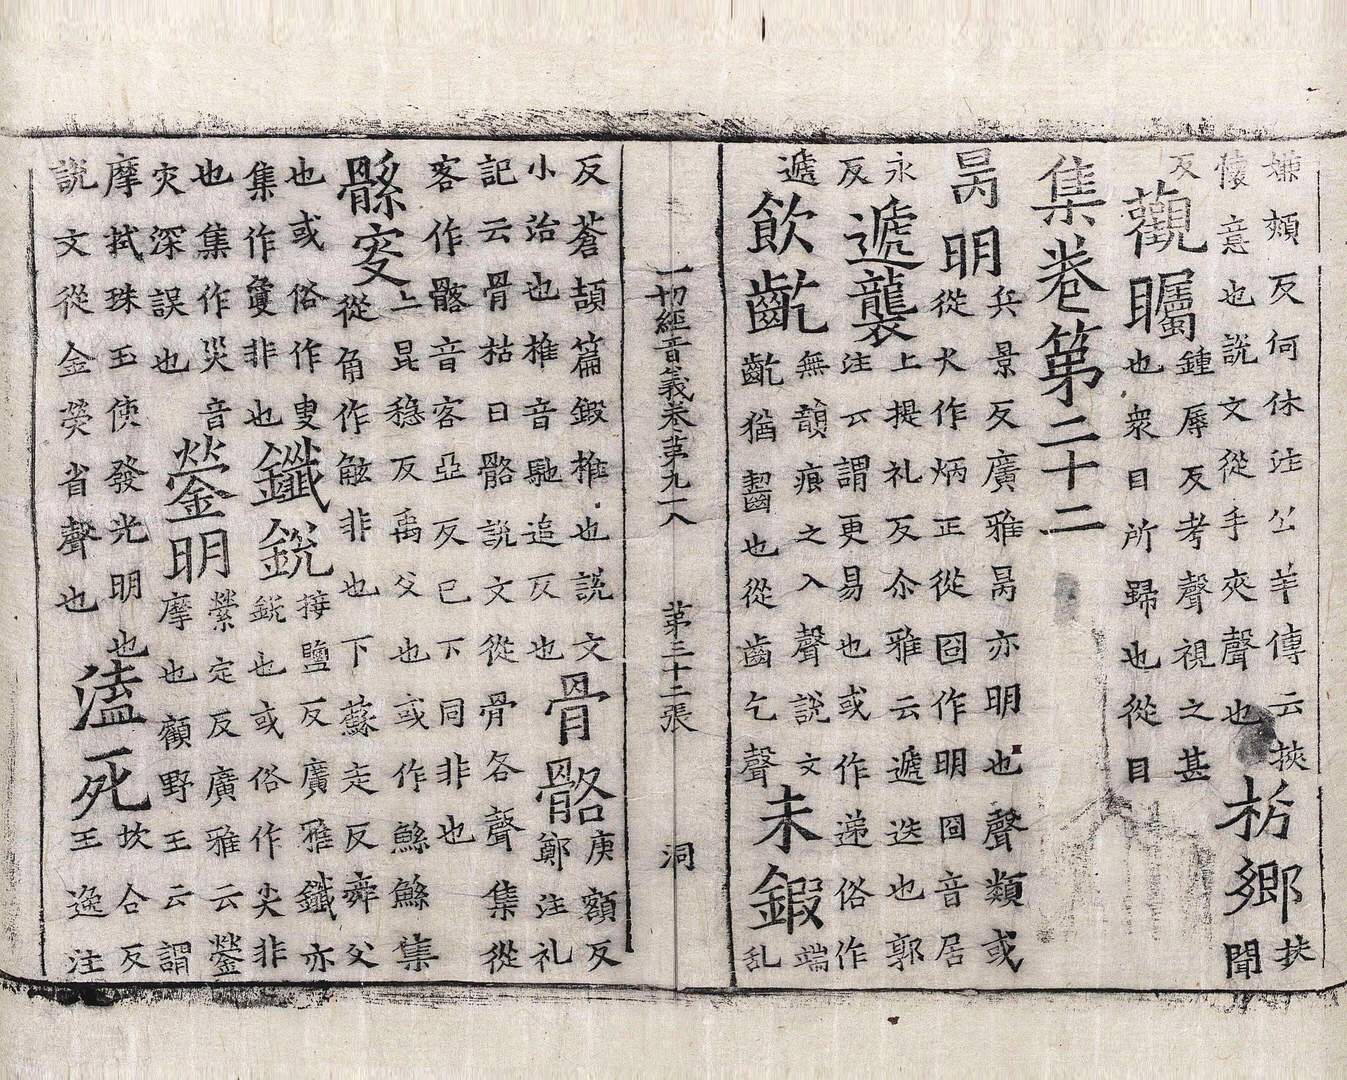 嫌頰反何休注公羊傳云挾
懷意也說文從手夾聲也
栃鄉
挾
聞
反
觀矚
鍾辱反考聲視之甚
也衆目所歸也從目
集卷第二十二
昺明
兵景反廣雅昺亦明也聲類或
從火作炳正從囧作明囧音居
永
反
遞襲
上提礼反尒雅云遞迭也郭
注云謂更易也或作递俗作
遞
飲齕
無韻痕之入聲說文
齕猶齧也從齒乞聲
未鍜
端
乱
一切經音義卷第九十八 第三十二張 洞
反蒼頡篇鍜椎也說文
小治也椎音馳追反也
骨骼
庚額反
鄭注礼
記云骨枯曰骼說文從骨各聲集從
客作髂音客亞反已下同非也
叜
上昆穩反禹父也或作鯀鯀集
從角作非也下蘇走反舜父
也或俗作叟
集作非也
鑯銳
接鹽反廣雅鑯亦
銳也或俗作尖非
也集作災音
灾深誤也
鎣明
縈定反廣雅云鎣
摩也顧野王云謂
摩拭珠玉使發光明也
說文從金熒省聲也
溘死
坎合反
王逸注